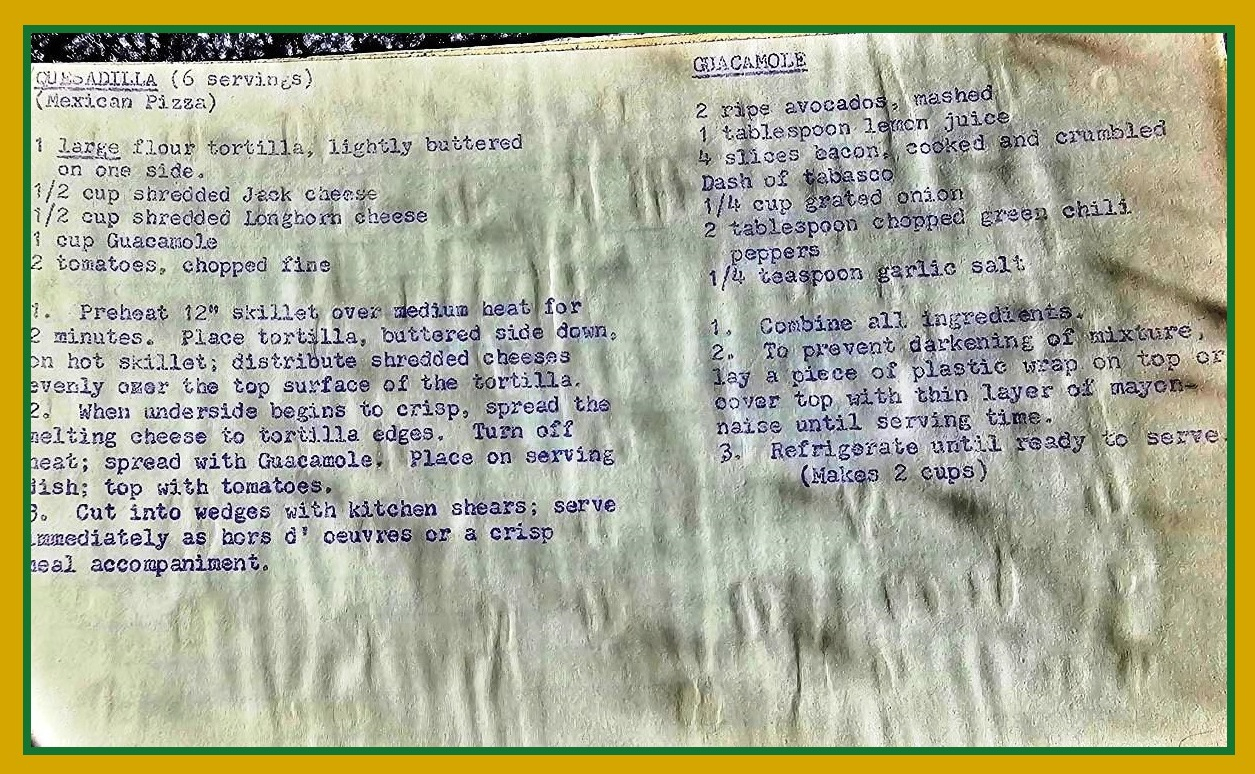 QUESADILLA (6 servings)
(Mexican Pizza)
1 large flour tortilla, lightly buttered
on one side.
1/2 cup shredded Jack cheese
1/2 cup shredded Longhorn cheese
1 cup Guacamole
2 tomatoes, chopped fine
1. Preheat 12" skillet over medium heat for
2 minutes. Place tortilla, buttered side down,
on hot skillet; distribute shredded cheeses
evenly omer the top surface of the tortilla.
2. When underside begins to crisp, spread the
melting cheese to tortilla edges. Turn off
heat; spread with Guacamole. Place on serving
dish; top with tomatoes.
3. Cut into wedges with kitchen shears; serve
immediately as hors d' oeuvres or a crisp
meal accompaniment.
GUACAMOLE
2 ripe avocados, mashed
1 tablespoon lemon juice
4 slices bacon, cooked and crumbled
Dash of tabasco
1/4 cup grated onion
2 tablespoon chopped green chili
peppers
1/4 teaspoon garlic salt
1. Combine all ingredients.
2. To prevent darkening of mixture,
lay a piece of plastic wrap on top or
cover top with thin layer of mayon-
naise until serving time.
3. Refrigerate until ready to serve.
(Makes 2 cups)